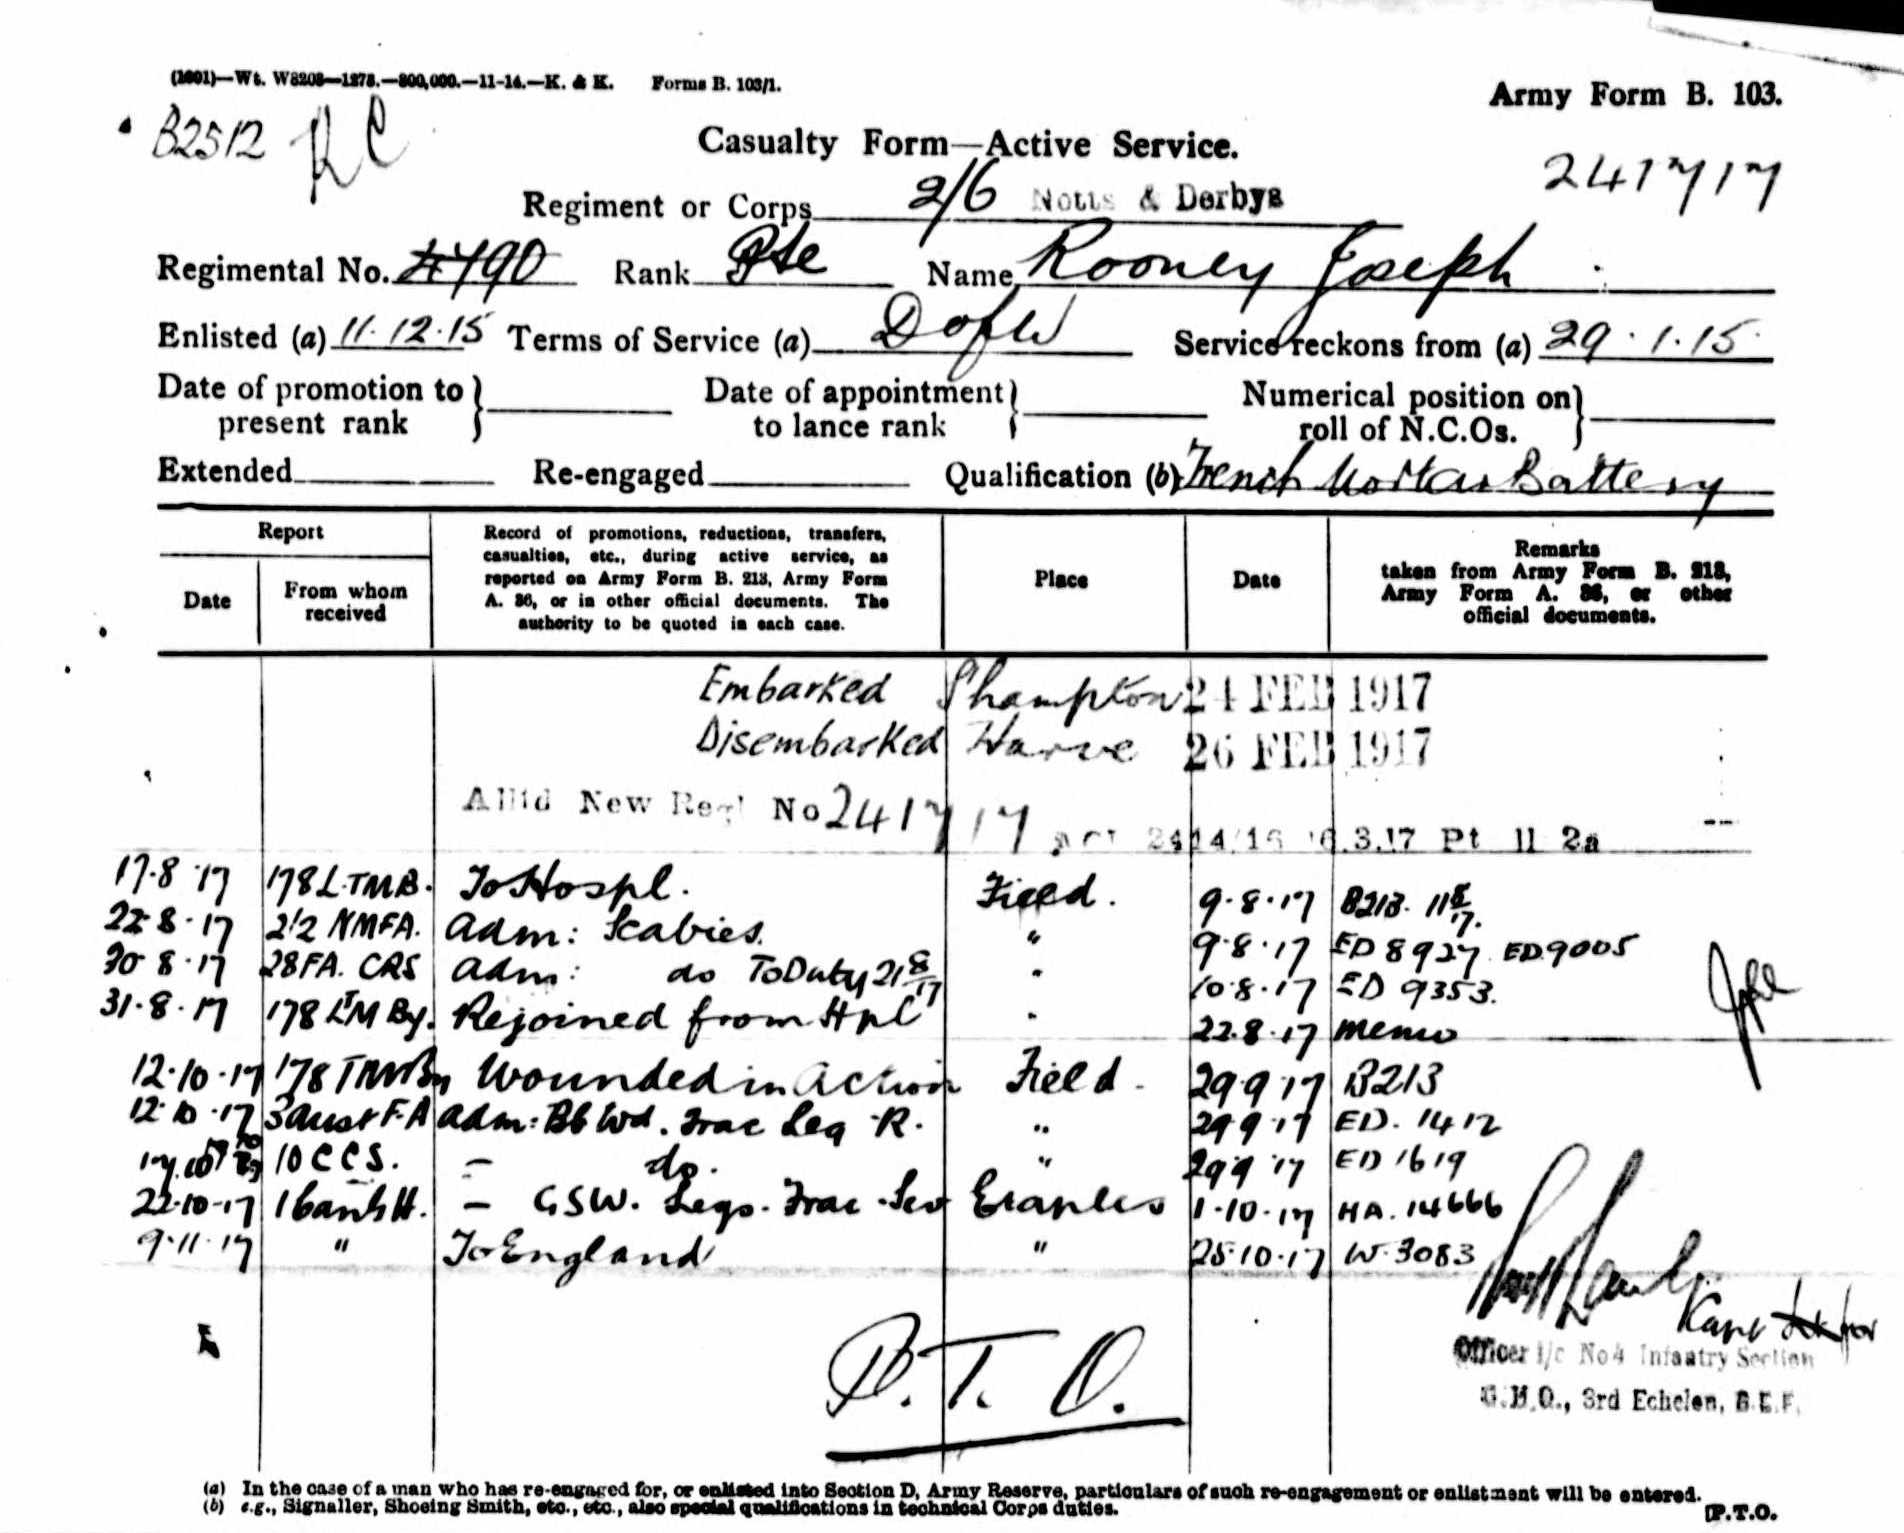 (1601)—Wt. W8208—1278.—800,000.—11-14.—K. & K. Forms B. 103/1.
Army Form B. 103.
B2512 RC
Casualty Form—Active Service.
241717
Regiment or Corps 2/6 Notts & Derbys
Regimental No. 4790 Rank Pte Name Rooney Joseph
Enlisted (a) 11.12.15 Terms of Service (a) DofW Service reckons from (a) 29.1.15.
Date of promotion to present rank } Date of appointment to lance rank } Numerical position on roll of N.C.Os. }
Extended Re-engaged Qualification (b) Trench Mortar Battery
Report
Date
From whom received
Record of promotions, reductions, transfers,
casualties, etc., during active service, as
reported on Army Form B. 213, Army Form
A. 36, or in other official documents. The
authority to be quoted in each case.
Place
Date
Remarks
taken from Army Form B. 213,
Army Form A. 36, or other
official documents.
Embarked S'hampton 24 FEB 1917
Disembarked Harve 26 FEB 1917
Alltd New Regl No 241717 ACI 2414/16 6.3.17 Pt II 2a
17.8.17 178 L.TMB. To Hospl. Field. 9.8.17 B213. 11 8/17.
22.8.17 2/2 NMFA. Adm: Scabies. " 9.8.17 ED 8927 ED 9005
30.8.17 28FA. CRS Adm: do To Duty 21 8/17 " 10.8.17 ED 9353.
31.8.17 178 LTM By. Rejoined from Hpl " 22.8.17 memo
12.10.17 178 TMBy Wounded in Action Field. 29.9.17 B213
12.10.17 3 Aust F.A Adm: Bb Wd. Frac Leg R. " 29.9.17 ED. 1412
10 CCS. — do. " 29.9.17 ED 1619
22.10.17 1 Can G H. — GSW. Legs. Frac. Etaples 1.10.17 HA. 14666
9.11.17 " To England " 25.10.17 W.3083
Capt for
Officer i/c No 4 Infantry Section
G.H.Q., 3rd Echelon, B.E.F.
P.T.O.
(a) In the case of a man who has re-engaged for, or enlisted into Section D, Army Reserve, particulars of such re-engagement or enlistment will be entered.
(b) e.g., Signaller, Shoeing Smith, etc., etc., also special qualifications in technical Corps duties.
[P.T.O.